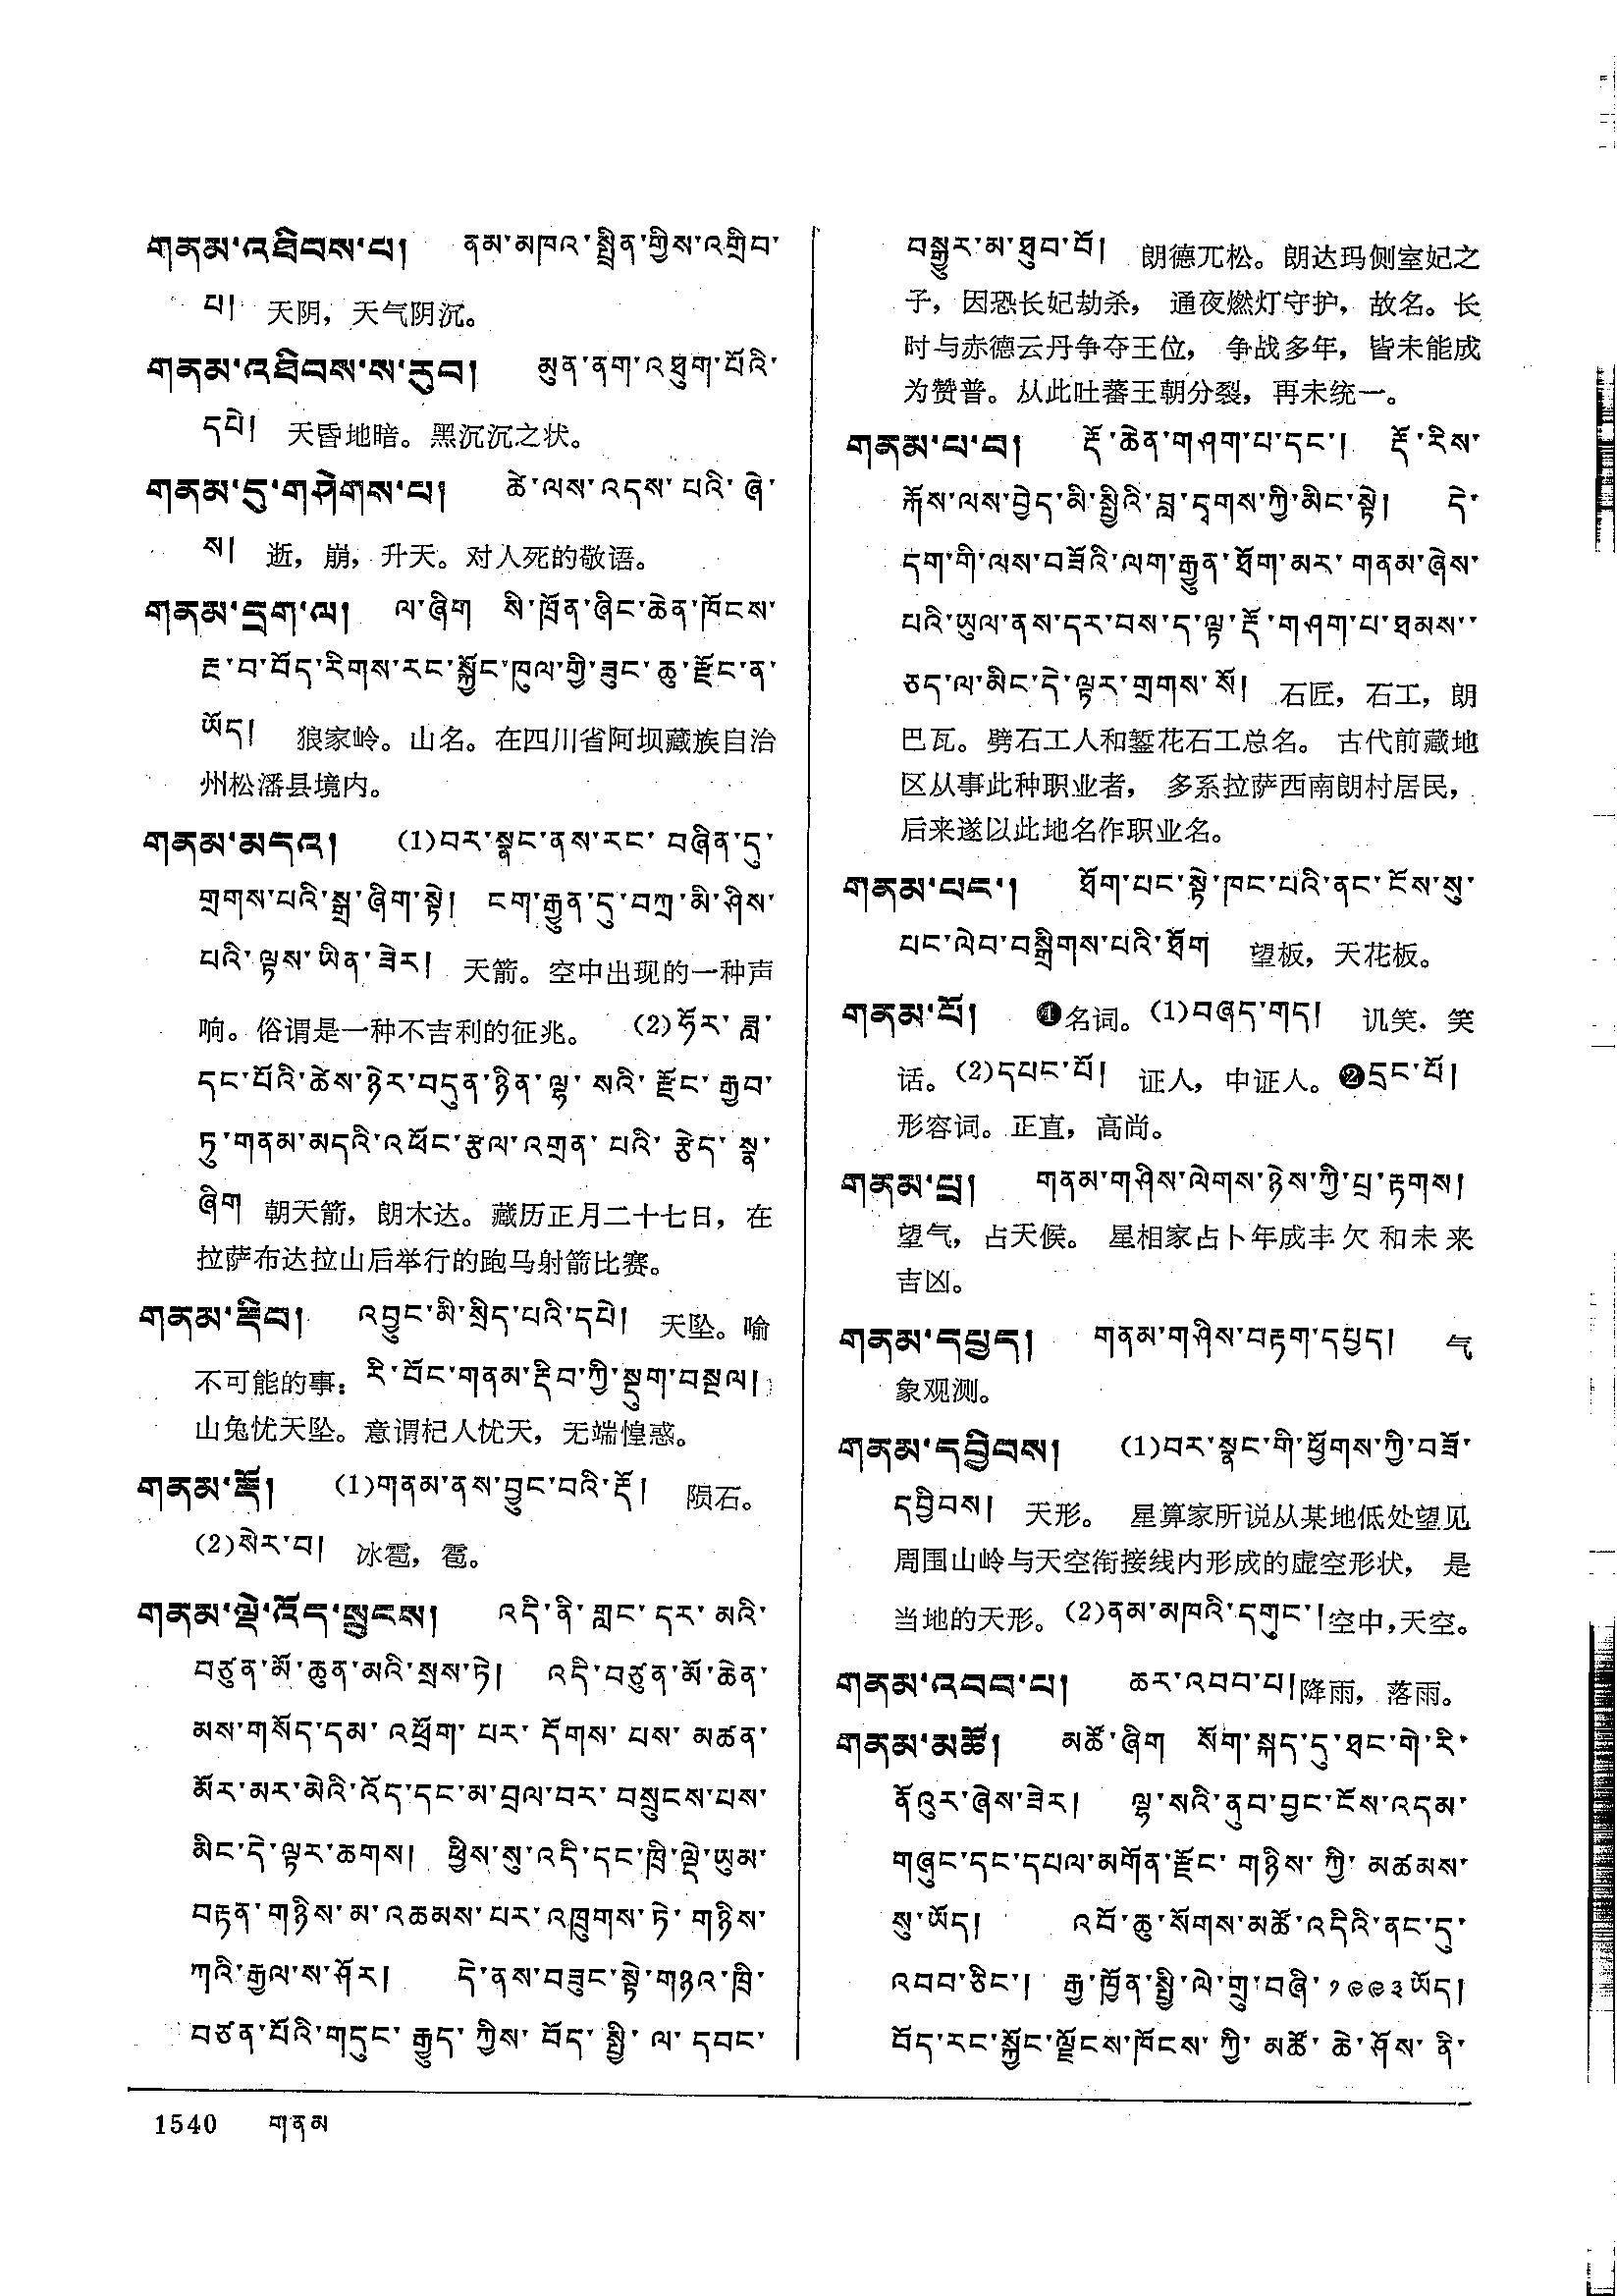 གནམ་འཐིབས་པ། ནམ་མཁའ་སྤྲིན་གྱིས་འགྲིབ་
པ། 天阴，天气阴沉。
གནམ་འཐིབས་ས་རུབ། མུན་ནག་འཐུག་པོའི་
དཔེ། 天昏地暗。黑沉沉之状。
གནམ་དུ་གཤེགས་པ། ཚེ་ལས་འདས་པའི་ཞེ་
ས། 逝，崩，升天。对人死的敬语。
གནམ་དྲག་ལ། ལ་ཞིག སི་ཁྲོན་ཞིང་ཆེན་ཁོངས་
རྔ་བ་བོད་རིགས་རང་སྐྱོང་ཁུལ་གྱི་ཟུང་ཆུ་རྫོང་ན་
ཡོད། 狼家岭。山名。在四川省阿坝藏族自治
州松潘县境内。
གནམ་མདའ། (1)བར་སྣང་ནས་རང་བཞིན་དུ་
གྲགས་པའི་སྒྲ་ཞིག་སྟེ། ངག་རྒྱུན་དུ་བཀྲ་མི་ཤིས་
པའི་ལྟས་ཡིན་ཟེར། 天箭。空中出现的一种声
响。俗谓是一种不吉利的征兆。 (2)ཧོར་ཟླ་
དང་པོའི་ཚེས་ཉེར་བདུན་ཉིན་ལྷ་སའི་རྫོང་རྒྱབ་
ཏུ་གནམ་མདའི་འཕོང་རྩལ་འགྲན་པའི་རྩེད་སྣ་
ཞིག 朝天箭，朗木达。藏历正月二十七日，在
拉萨布达拉山后举行的跑马射箭比赛。
གནམ་རྡིབ། འབྱུང་མི་སྲིད་པའི་དཔེ། 天坠。喻
不可能的事：རི་བོང་གནམ་རྡིབ་ཀྱི་སྡུག་བསྔལ།
山兔忧天坠。意谓杞人忧天，无端惶惑。
གནམ་རྡོ། (1)གནམ་ནས་བྱུང་བའི་རྡོ། 陨石。
(2)སེར་བ། 冰雹，雹。
གནམ་ལྡེ་འོད་སྲུངས། འདི་ནི་གླང་དར་མའི་
བཙུན་མོ་ཆུན་མའི་སྲས་ཏེ། འདི་བཙུན་མོ་ཆེན་
མས་གསོད་དམ་འཕྲོག་པར་དོགས་པས་མཚན་
མོར་མར་མེའི་འོད་དང་མ་བྲལ་བར་བསྲུངས་པས་
མིང་དེ་ལྟར་ཆགས། ཕྱིས་སུ་འདི་དང་ཁྲི་ལྡེ་ཡུམ་
བརྟན་གཉིས་མ་འཆམས་པར་འཁྲུགས་ཏེ་གཉིས་
ཀའི་རྒྱལ་ས་ཤོར། དེ་ནས་བཟུང་སྟེ་གཉའ་ཁྲི་
བཙན་པོའི་གདུང་རྒྱུད་ཀྱིས་བོད་སྤྱི་ལ་དབང་
བསྒྱུར་མ་ཐུབ་བོ། 朗德兀松。朗达玛侧室妃之
子，因恐长妃劫杀，通夜燃灯守护，故名。长
时与赤德云丹争夺王位，争战多年，皆未能成
为赞普。从此吐蕃王朝分裂，再未统一。
གནམ་པ་བ། རྡོ་ཆེན་གཤག་པ་དང་། རྡོ་རིས་
རྐོས་ལས་བྱེད་མི་སྤྱིའི་བླ་དྭགས་ཀྱི་མིང་སྟེ། དེ་
དག་གི་ལས་བཟོའི་ལག་རྒྱུན་ཐོག་མར་གནམ་ཞེས་
པའི་ཡུལ་ནས་དར་བས་ད་ལྟ་རྡོ་གཤག་པ་ཐམས་
ཅད་ལ་མིང་དེ་ལྟར་གྲགས་སོ། 石匠，石工，朗
巴瓦。劈石工人和錾花石工总名。古代前藏地
区从事此种职业者，多系拉萨西南朗村居民，
后来遂以此地名作职业名。
གནམ་པང་། ཐོག་པང་སྟེ་ཁང་པའི་ནང་ངོས་སུ་
པང་ལེབ་བསྒྲིགས་པའི་ཐོག 望板，天花板。
གནམ་པོ། ❶名词。(1)བཞད་གད། 讥笑．笑
话。(2)དཔང་པོ། 证人，中证人。❷དྲང་པོ།
形容词。正直，高尚。
གནམ་པྲ། གནམ་གཤིས་ལེགས་ཉེས་ཀྱི་པྲ་རྟགས།
望气，占天候。星相家占卜年成丰欠和未来
吉凶。
གནམ་དཔྱད། གནམ་གཤིས་བརྟག་དཔྱད། 气
象观测。
གནམ་དབྱིབས། (1)བར་སྣང་གི་ཕྱོགས་ཀྱི་བཟོ་
དབྱིབས། 天形。星算家所说从某地低处望见
周围山岭与天空衔接线内形成的虚空形状，是
当地的天形。(2)ནམ་མཁའི་དགུང་།空中，天空。
གནམ་འབབ་པ། ཆར་འབབ་པ།降雨，落雨。
གནམ་མཚོ། མཚོ་ཞིག སོག་སྐད་དུ་ཐང་གེ་རི་
ནོའུར་ཞེས་ཟེར། ལྷ་སའི་ནུབ་བྱང་ངོས་འདམ་
གཞུང་དང་དཔལ་མགོན་རྫོང་གཉིས་ཀྱི་མཚམས་
སུ་ཡོད། འབོ་ཆུ་སོགས་མཚོ་འདིའི་ནང་དུ་
འབབ་ཅིང་། རྒྱ་ཁྱོན་སྤྱི་ལེ་གྲུ་བཞི་༡༩༩༣ཡོད།
བོད་རང་སྐྱོང་ལྗོངས་ཁོངས་ཀྱི་མཚོ་ཆེ་ཤོས་ནི་
1540 གནམ